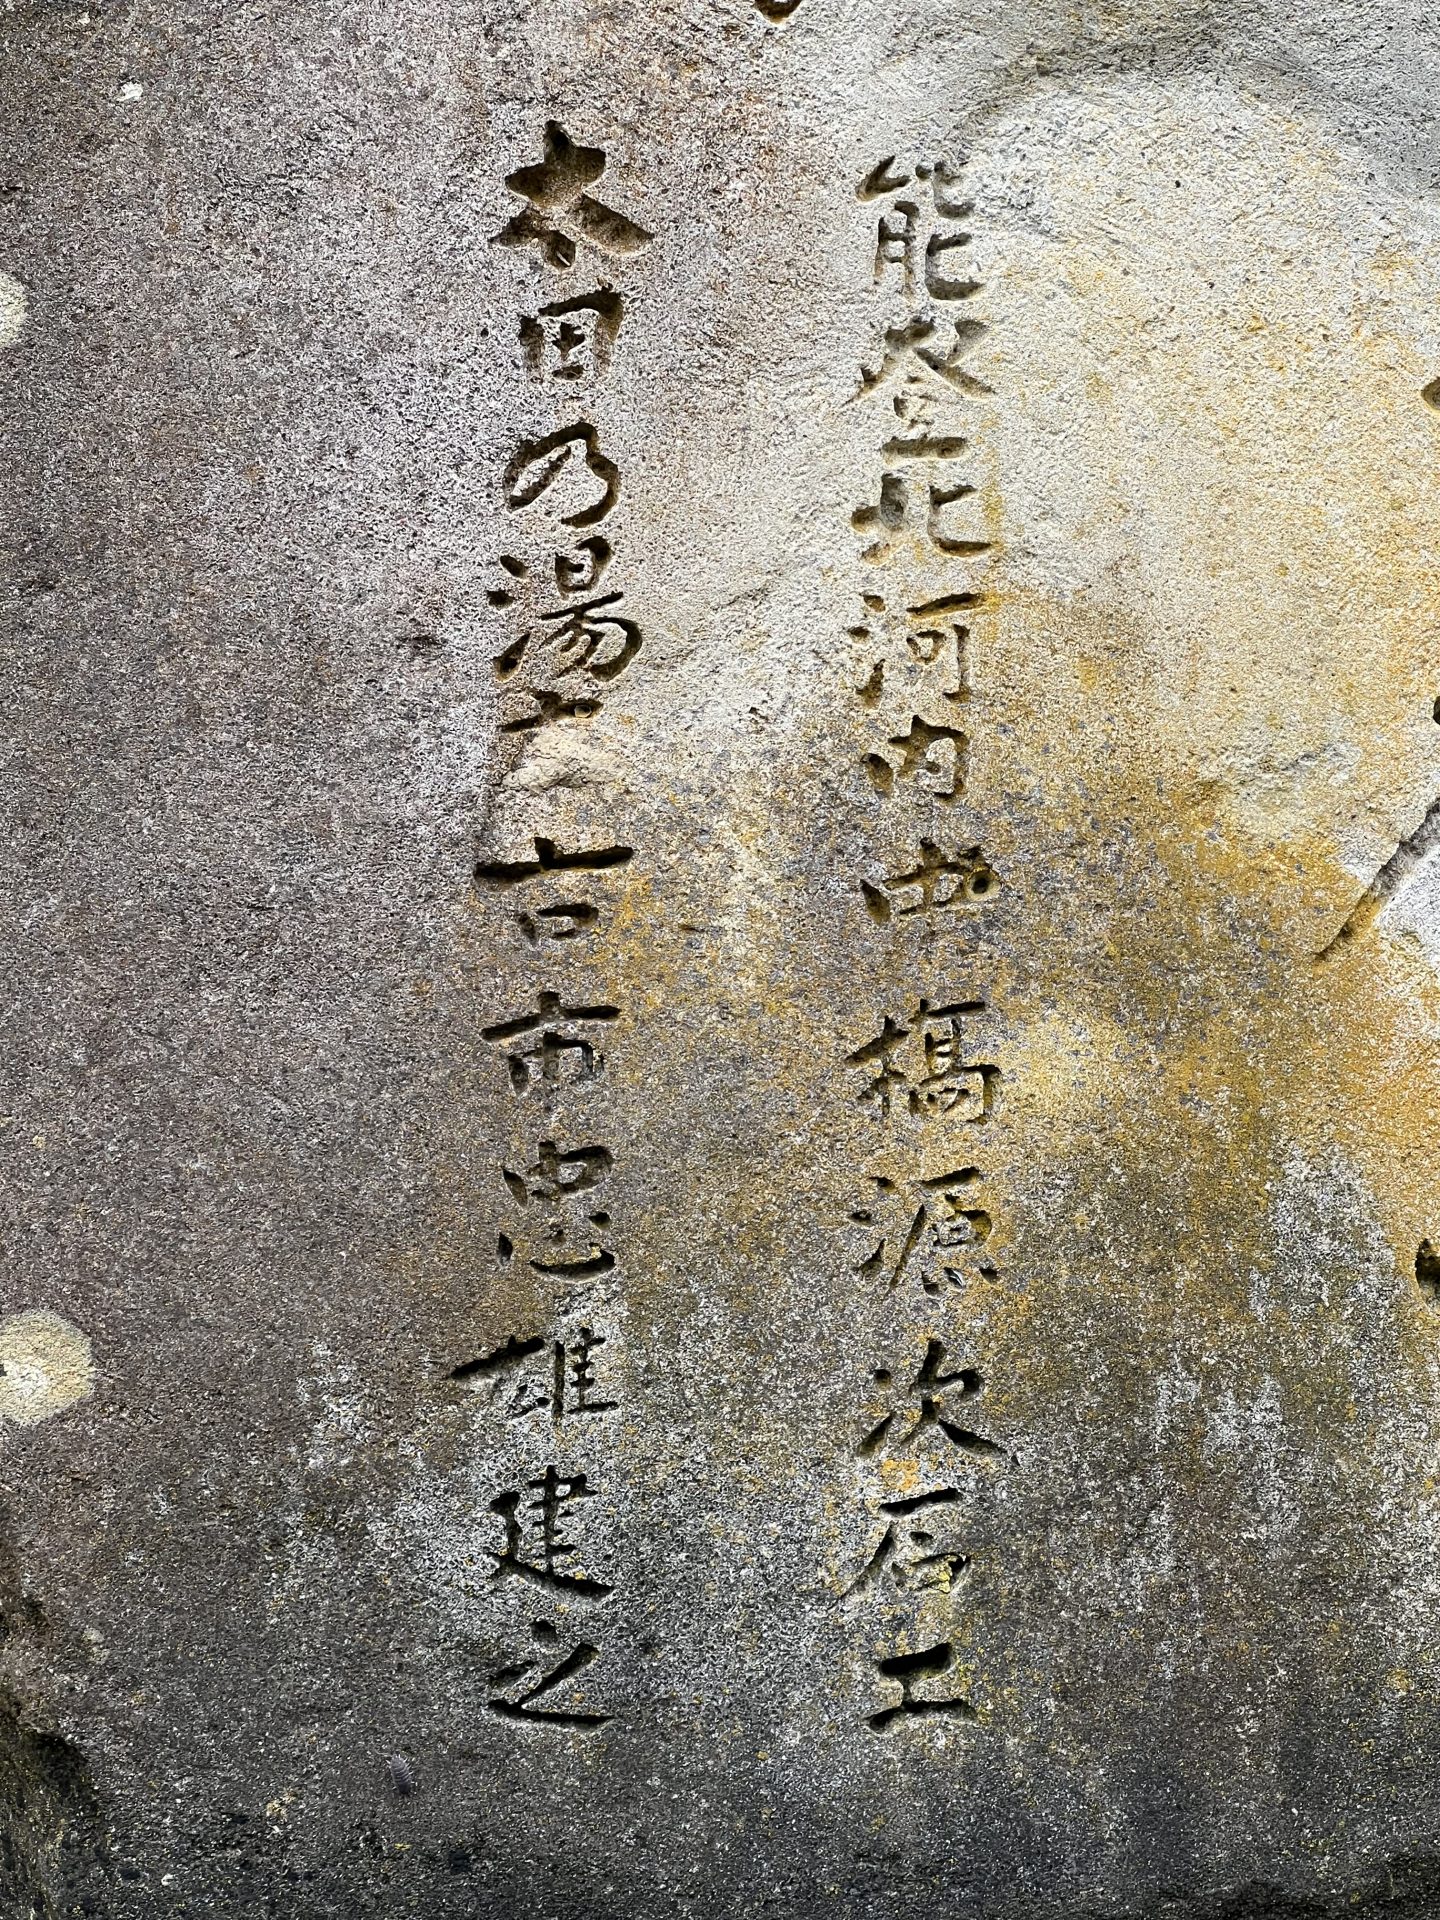 能登北河内中橋源次石工
太田乃湯主古市忠雄建之